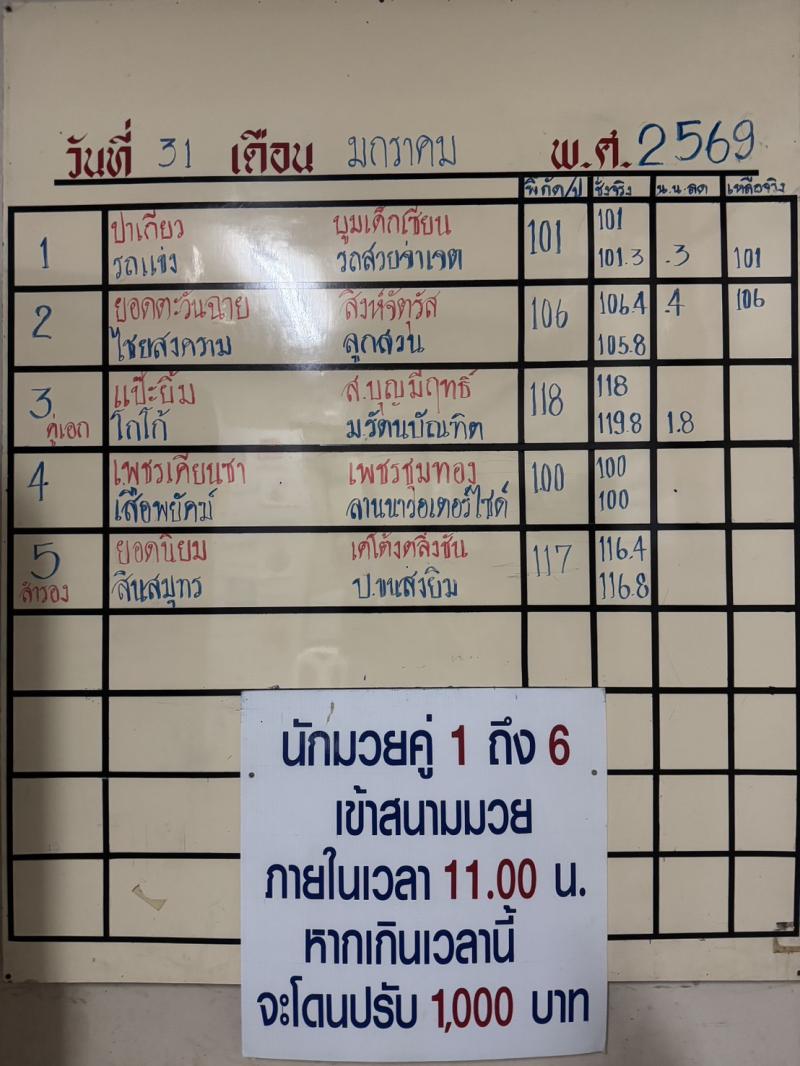 วันที่ 31 เดือน มกราคม พ.ศ. 2569
พิกัด/ป ชั่งจริง น.น.ลด เหลือจริง
1 ปาเกียว บูมเด็กเซียน 101 101
รถแข่ง รถสวยจ่าเจต 101.3 .3 101
2 ยอดตะวันฉาย สิงห์จัตุรัส 106 106.4 .4 106
ไชยสงคราม ลูกสวน 105.8
3 แป๊ะยิ้ม ส.บุญมีฤทธิ์ 118 118
คู่เอก โกโก้ ม.รัตนบัณฑิต 119.8 1.8
4 เพชรเคียนซา เพชรชุมทอง 100 100
เสือพยัคฆ์ ลานนาวอเตอร์ไซด์ 100
5 ยอดนิยม เคโต้งตลิ่งชัน 117 116.4
สำรอง สินสมุทร ป.ขนส่งยิม 116.8
นักมวยคู่ 1 ถึง 6
เข้าสนามมวย
ภายในเวลา 11.00 น.
หากเกินเวลานี้
จะโดนปรับ 1,000 บาท